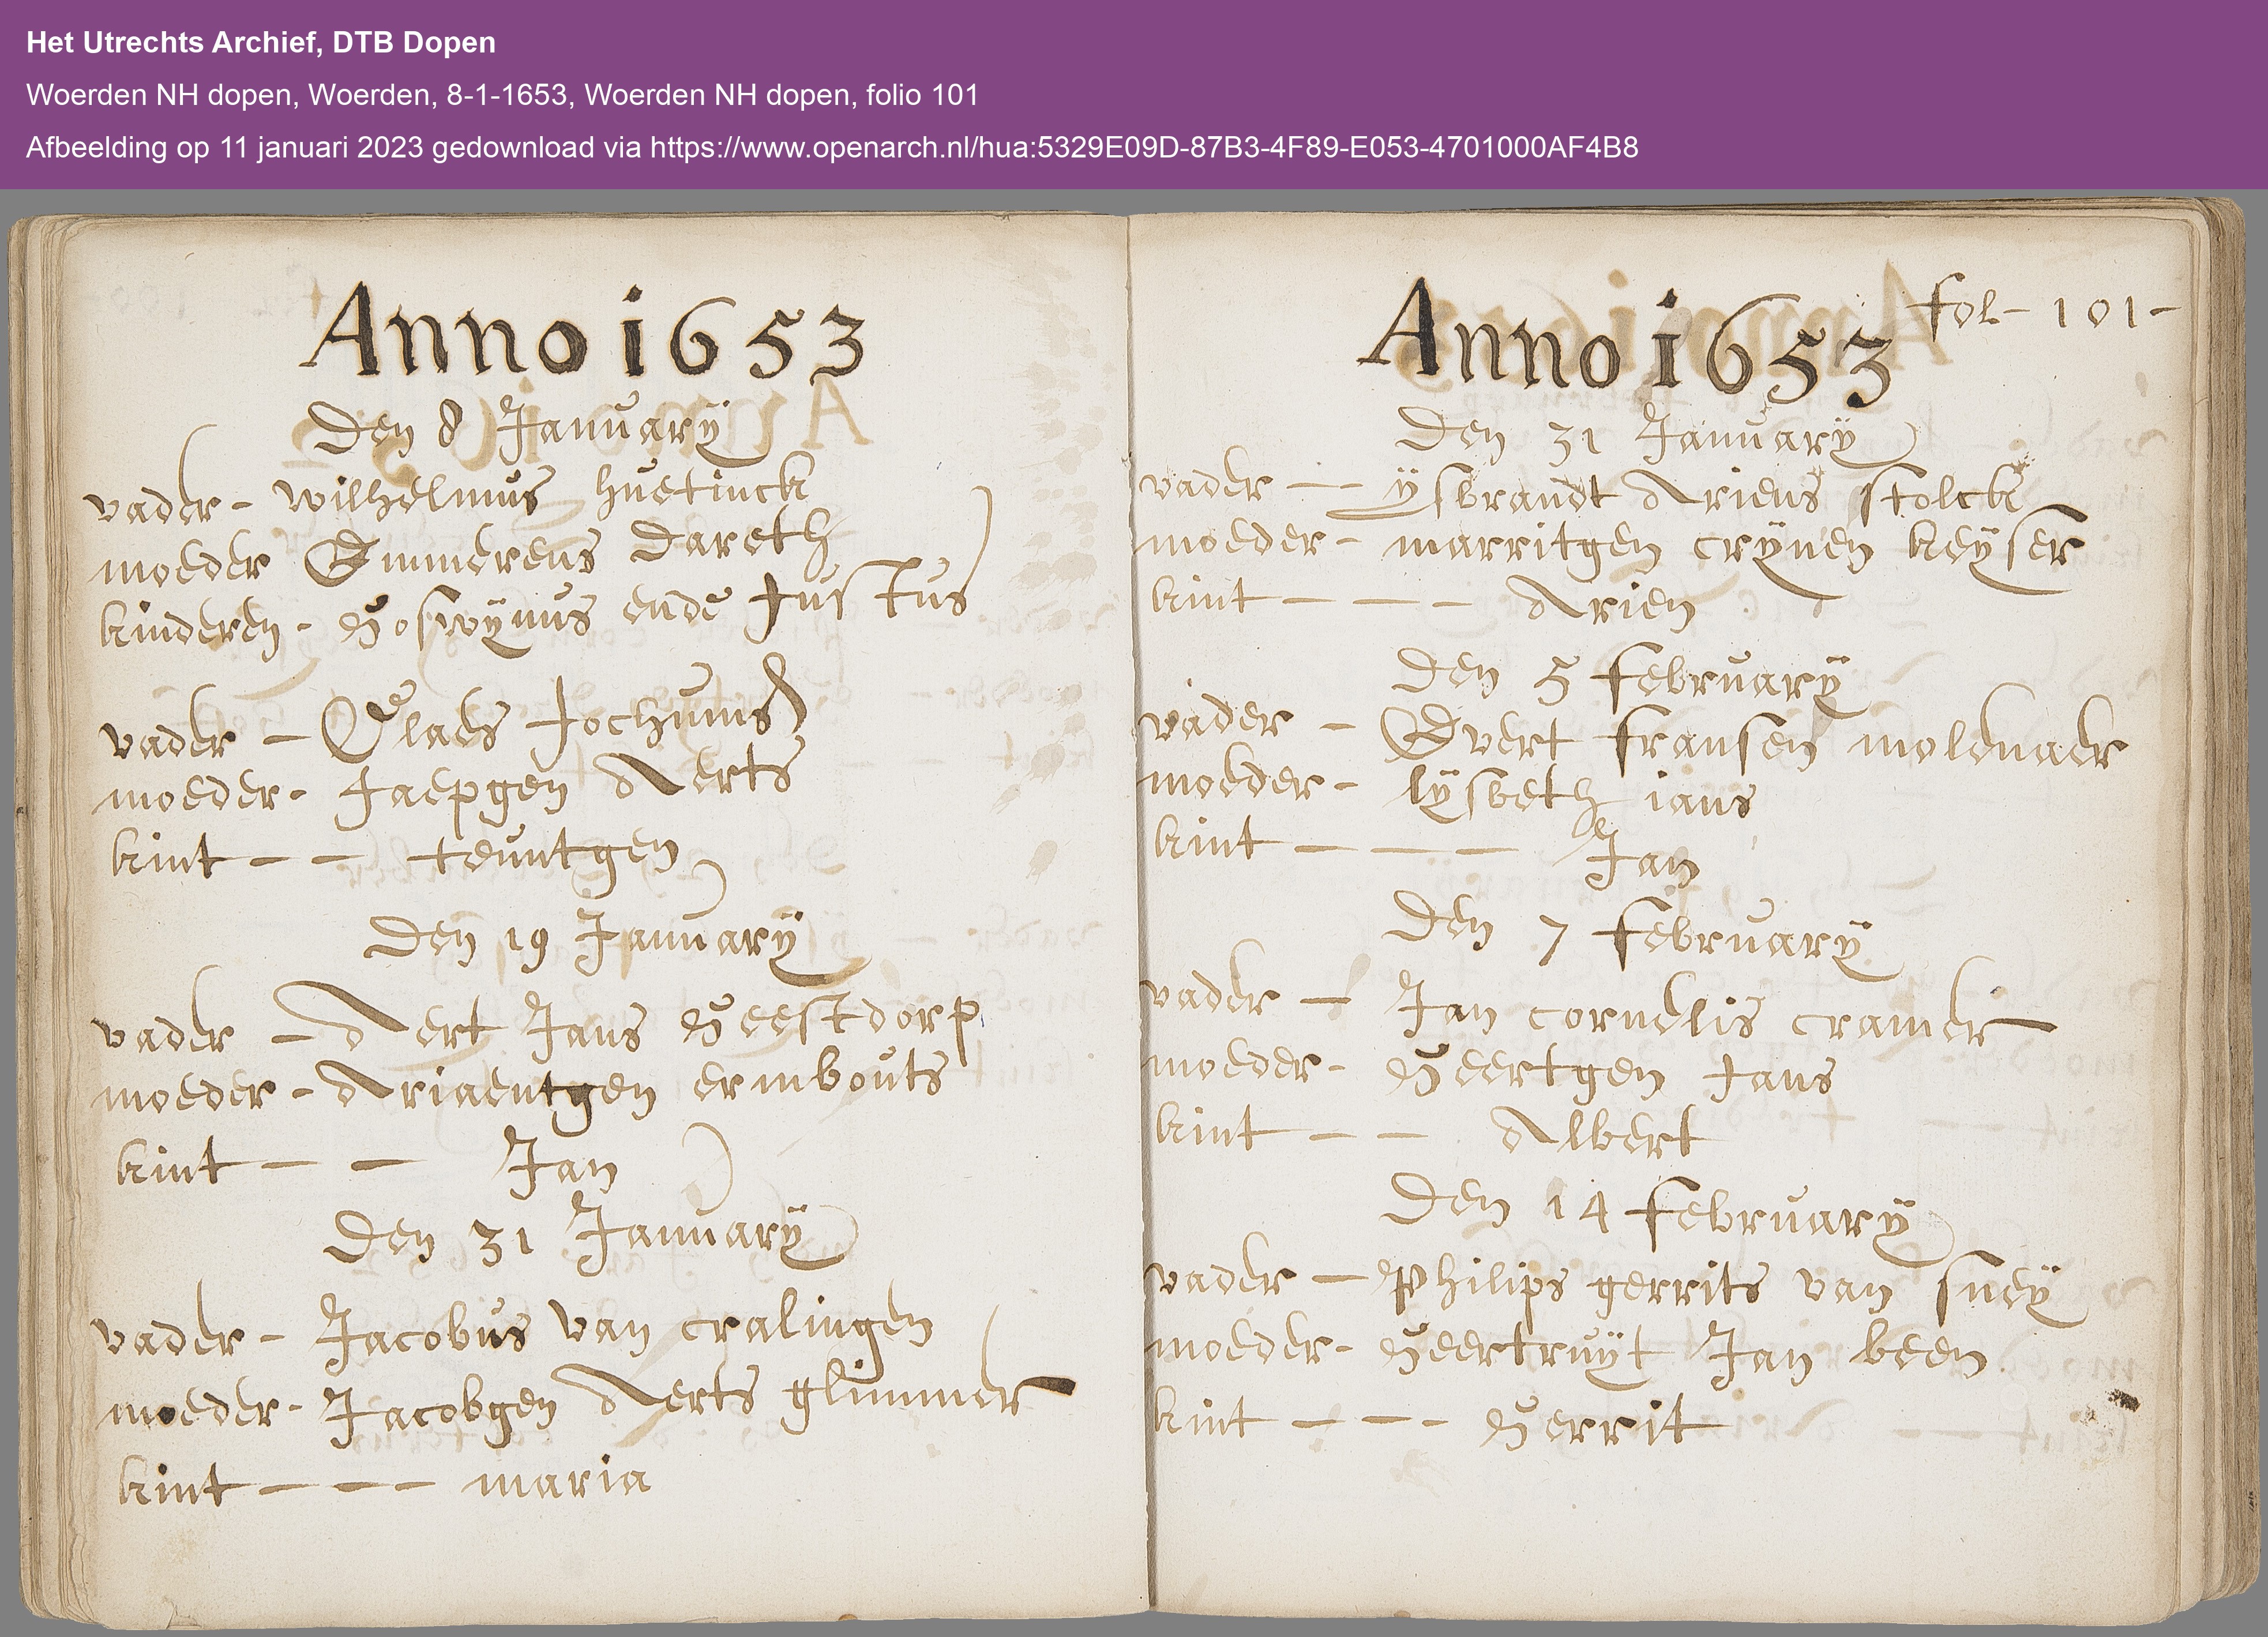 Het Utrechts Archief, DTB Dopen
Woerden NH dopen, Woerden, 8-1-1653, Woerden NH dopen, folio 101
Afbeelding op 11 januari 2023 gedownload via https://www.openarch.nl/hua:5329E09D-87B3-4F89-E053-4701000AF4B8
Anno 1653
Den 8 January
vader - wilhelmus huetinck
moeder Emmerens Dareth
kinderen - Goswÿnus ende Justus
vader - Claes Jochums
moeder - Jaepgen Aerts
kint - - teuntgen
Den 19 Januarÿ
vader - Aert Jans Geestdorp
moeder - Ariaentgen ermbouts
kint - - Jan
Den 31 Januarÿ
vader - Jacobus van cralingen
moeder - Jacobgen Aerts glimmer
kint - - - maria
fol - 101 -
Anno 1653
Den 31 Januarÿ
vader - - ÿsbrandt Ariens stolck
moeder - marritgen crÿnen keÿser
kint - - - Arien
Den 5 februarÿ
vader - Evert fransen molenaer
moeder - lÿsbeth ians
kint - - - Jan
Den 7 februarÿ
vader - Jan cornelis cramer
moeder - Geertgen Jans
kint - - Albert
Den 14 februarÿ
vader - Philips gerrits van sneÿ
moeder - Geertruÿt Jan been
kint - - - Gerrit